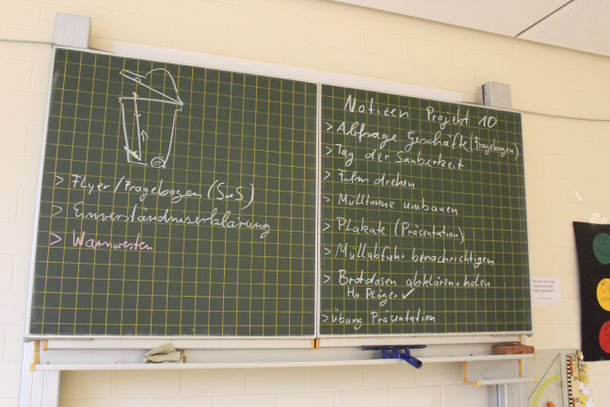 > Flyer/Fragebogen (SuS)
> Einverständniserklärung
> Warnwesten
Notizen Projekt 10
> Abfrage Geschäfte (Fragebogen)
> Tag der Sauberkeit
> Film drehen
> Mülltonne umbauen
> Plakate (Präsentation)
> Müllabfuhr benachrichtigen
> Brotdosen abklären + holen
Hr. Plöger ✓
> Übung Präsentation